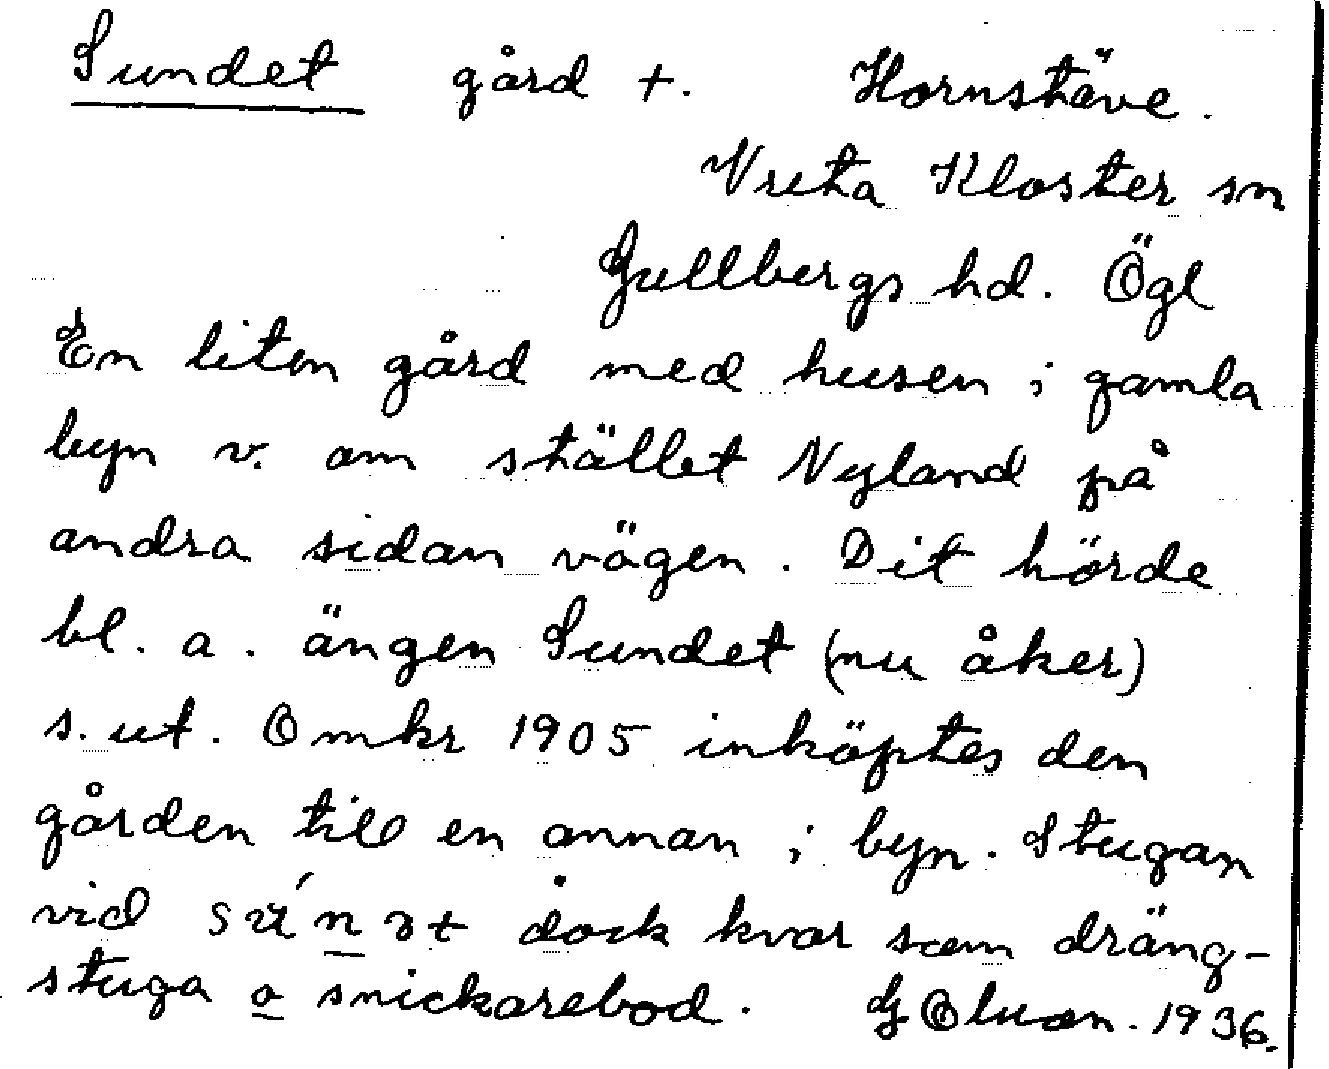 Sundet gård +. Hornstäve.
Vreta Kloster sn
Gullbergs hd. Ögl
En liten gård med husen i gamla
byn v. om stället Nyland på
andra sidan vägen. Dit hörde
bl. a. ängen Sundet (nu åker)
s. ut. Omkr 1905 inköptes den
gården till en annan i byn. Stugan
vid dock kvar som dräng-
stuga o snickarebod. G 1936.